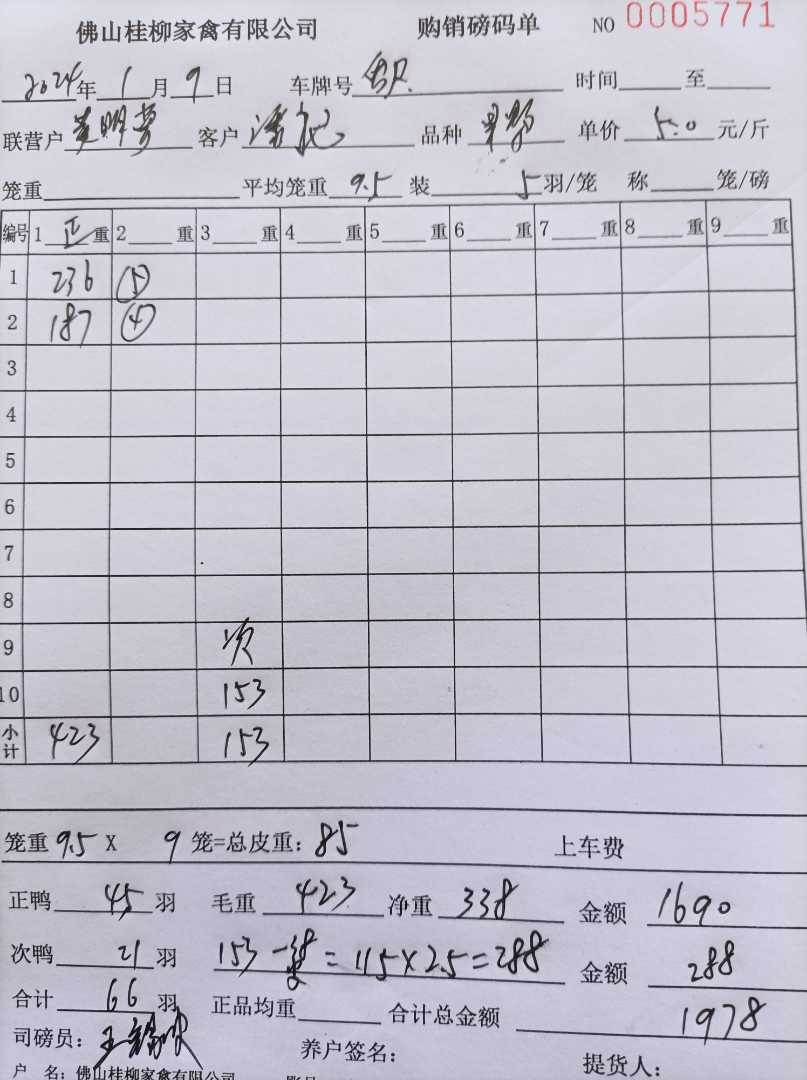 佛山桂柳家禽有限公司 购销磅码单 NO 0005771
2024年 1月 9日 车牌号 时间 至
联营户 黄明 客户 潘记 品种 单价 5.0 元/斤
笼重 平均笼重 9.5 装 5 羽/笼 称 笼/磅
编号 1 正 重 2 重 3 重 4 重 5 重 6 重 7 重 8 重 9 重
1 236 ⑤
2 187 ④
3
4
5
6
7
8
9 次
10 153
小计 423 153
笼重 9.5 X 9 笼=总皮重: 85 上车费
正鸭 45 羽 毛重 423 净重 338 金额 1690
次鸭 21 羽 153-38=115×2.5=288 金额 288
合计 66 羽 正品均重 合计总金额 1978
司磅员: 王 养户签名: 提货人:
户 名: 佛山桂柳家禽有限公司 账号